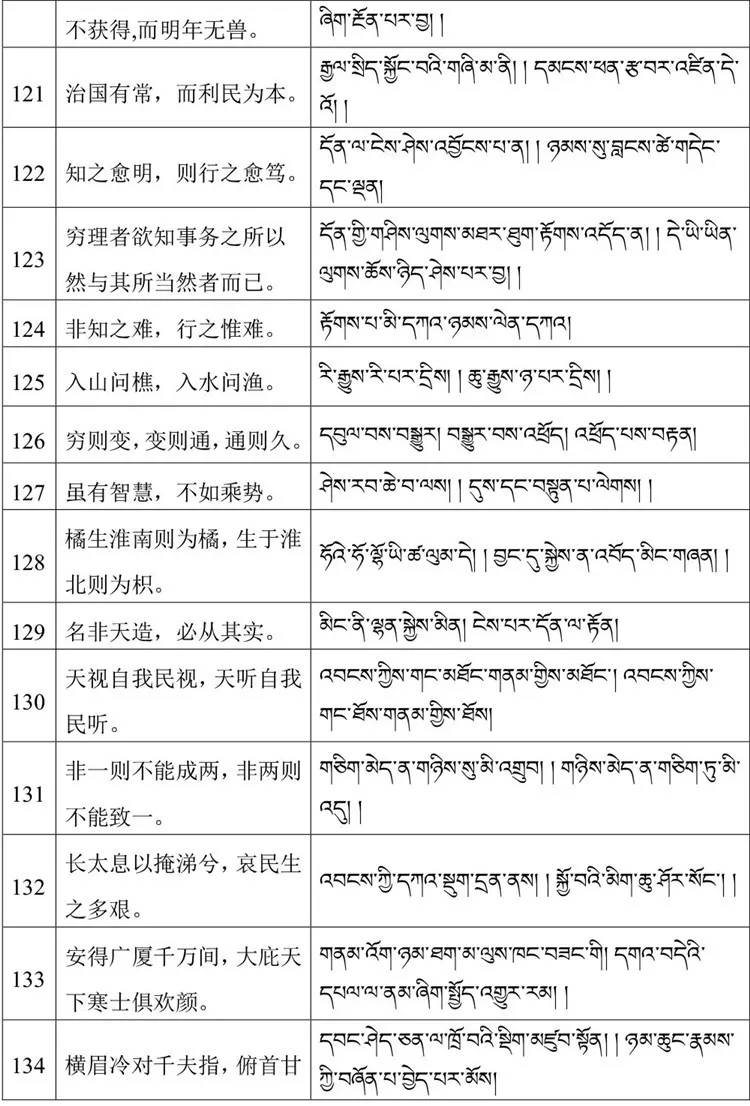 不获得,而明年无兽。
ཞིག་རྔོན་པར་བྱ། །
121
治国有常，而利民为本。
རྒྱལ་སྲིད་སྐྱོང་བའི་གཞི་མ་ནི། ། དམངས་ཕན་རྩ་བར་འཛིན་དེ་
འོ། །
122
知之愈明，则行之愈笃。
དོན་ལ་ངེས་ཤེས་འབྱོངས་པ་ན། ། ཉམས་སུ་བླངས་ཚེ་གདེང་
དང་ལྡན།
123
穷理者欲知事务之所以
然与其所当然者而已。
དོན་གྱི་གཤིས་ལུགས་མཐར་ཐུག་རྟོགས་འདོད་ན། ། དེ་ཡི་ཡིན་
ལུགས་ཆོས་ཉིད་ཤེས་པར་བྱ། །
124
非知之难，行之惟难。
རྟོགས་པ་མི་དཀའ་ཉམས་ལེན་དཀའ།
125
入山问樵，入水问渔。
རི་རྒྱུས་རི་པར་དྲིས། ། ཆུ་རྒྱུས་ཉ་པར་དྲིས། །
126
穷则变,变则通,通则久。
དབུལ་བས་བསྒྱུར། བསྒྱུར་བས་འཕྲོད། འཕྲོད་པས་བརྟན།
127
虽有智慧，不如乘势。
ཤེས་རབ་ཆེ་བ་ལས། ། དུས་དང་བསྟུན་པ་ལེགས། །
128
橘生淮南则为橘,生于淮
北则为枳。
ཧོའེ་ཧོ་ལྷོ་ཡི་ཚ་ལུམ་དེ། ། བྱང་དུ་སྐྱེས་ན་འབོད་མིང་གཞན། །
129
名非天造，必从其实。
མིང་ནི་ལྷན་སྐྱེས་མིན། ངེས་པར་དོན་ལ་རྟོན།
130
天视自我民视,天听自我
民听。
འབངས་ཀྱིས་གང་མཐོང་གནམ་གྱིས་མཐོང་། འབངས་ཀྱིས་
གང་ཐོས་གནམ་གྱིས་ཐོས།
131
非一则不能成两,非两则
不能致一。
གཅིག་མེད་ན་གཉིས་སུ་མི་འགྲུབ། ། གཉིས་མེད་ན་གཅིག་ཏུ་མི་
འདུ། །
132
长太息以掩涕兮，哀民生
之多艰。
འབངས་ཀྱི་དཀའ་སྡུག་དྲན་ནས། ། སྐྱོ་བའི་མིག་ཆུ་ཤོར་སོང་། །
133
安得广厦千万间,大庇天
下寒士俱欢颜。
གནམ་འོག་ཉམ་ཐག་མ་ལུས་ཁང་བཟང་གི། དགའ་བདེའི་
དཔལ་ལ་ནམ་ཞིག་སྤྱོད་འགྱུར་རམ། །
134
横眉冷对千夫指,俯首甘
དབང་ཤེད་ཅན་ལ་ཁྲོ་བའི་སྡིག་མཛུབ་སྟོན། ། ཉམ་ཆུང་རྣམས་
ཀྱི་བཞོན་པ་བྱེད་པར་མོས།